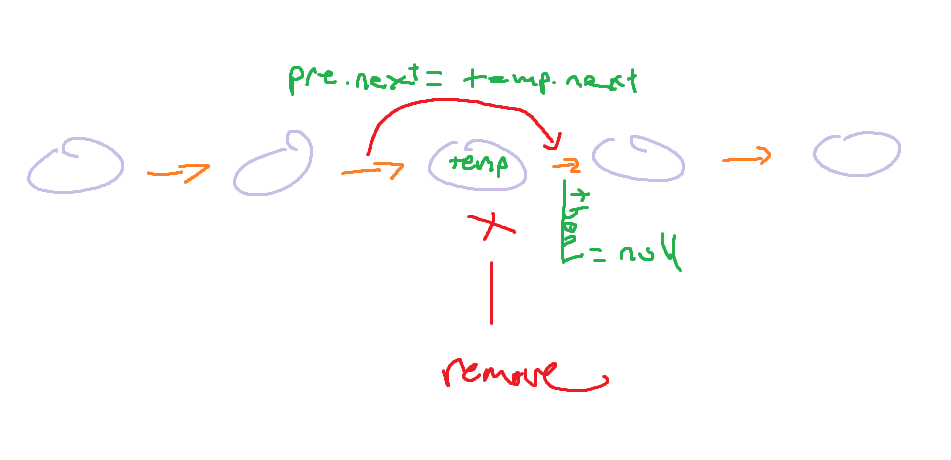 pre.next = temp.next
temp
= null
remove